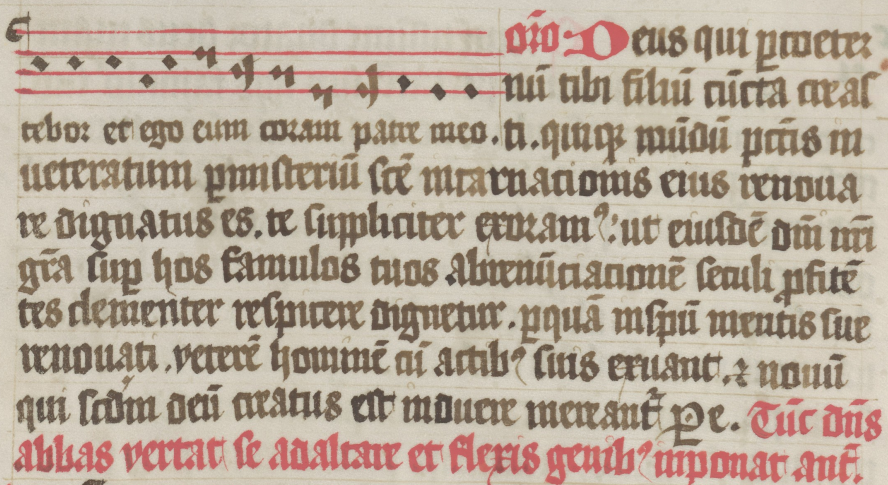 orō Deus qui ꝑ coeter
nū tibi filiū cūcta creas
tebor et ego eum coram patre meo. ti. quiqꝫ mūdū pctīs in
ueteratum ꝑ ministeriū scē incarnacionis eius renoua
re dignatus es. te suppliciter exoramꝰ: ut eiusdē dn̄i nr̄i
gr̄a suꝑ hos famulos tuos abrenūciacionē seculi ꝓfitē
tes clementer respicere dignetur. ꝑ quā in spū mentis sue
renouati. veterē hominē cū actibꝰ suis exuant. ⁊ nouū
qui scdm deū creatus est induere mereant᷑. Pe. Tūc dn̄s
abbas vertat se ad altare et flexis genibꝰ inponat ant̄.